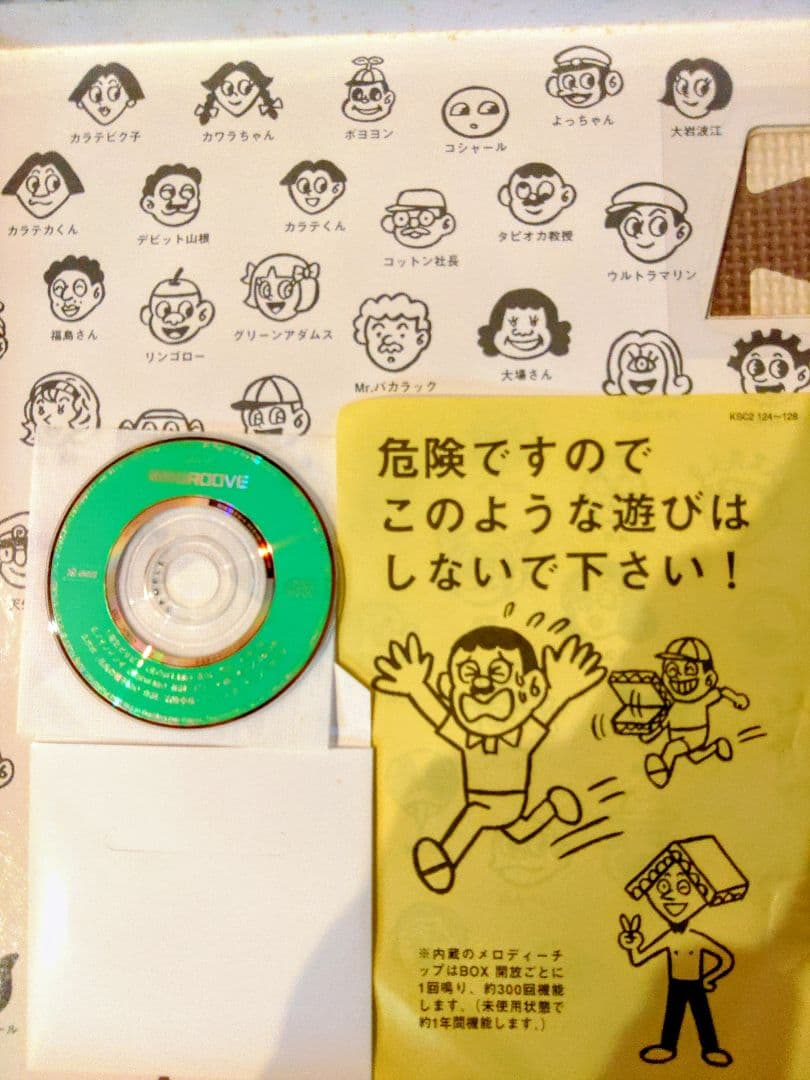 カラテビク子
カワラちゃん
ボヨヨン
コシャール
よっちゃん
大岩波江
カラテカくん
デビット山根
カラテくん
コットン社長
タピオカ教授
ウルトラマリン
福島さん
リンゴロー
グリーンアダムス
Mr.バカラック
大場さん
KSC2 124〜128
危険ですので
このような遊びは
しないで下さい！
GROOVE
※内蔵のメロディーチ
ップはBOX 開放ごとに
1回鳴り、約300回機能
します。（未使用状態で
約1年間機能します。）